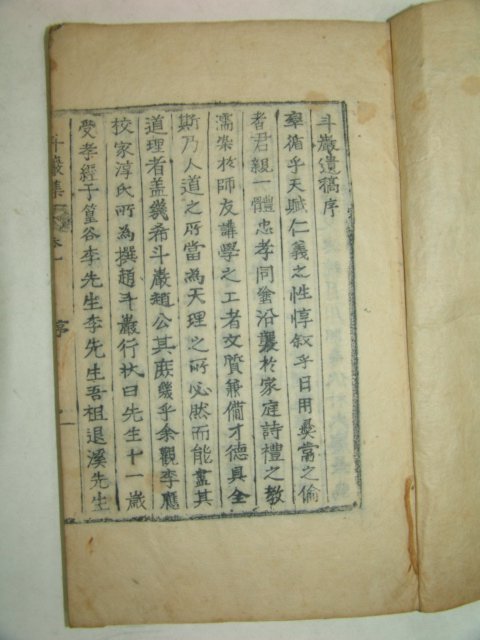 斗巖遺稿序
率循乎天賦仁義之性惇叙乎日用彛常之倫
者君親一體忠孝同倫沿襲於家庭詩禮之教
濡染於師友講學之工者文質兼備才德具全
斯乃人道之所當為天理之所必然而能盡其
道理者盖幾希斗巖趙公其庶幾乎余觀李應
校家淳氏所為撰趙斗巖行狀曰先生十一歲
受孝經于篁谷李先生李先生吾祖退溪先生
斗巖集
卷一
序
一